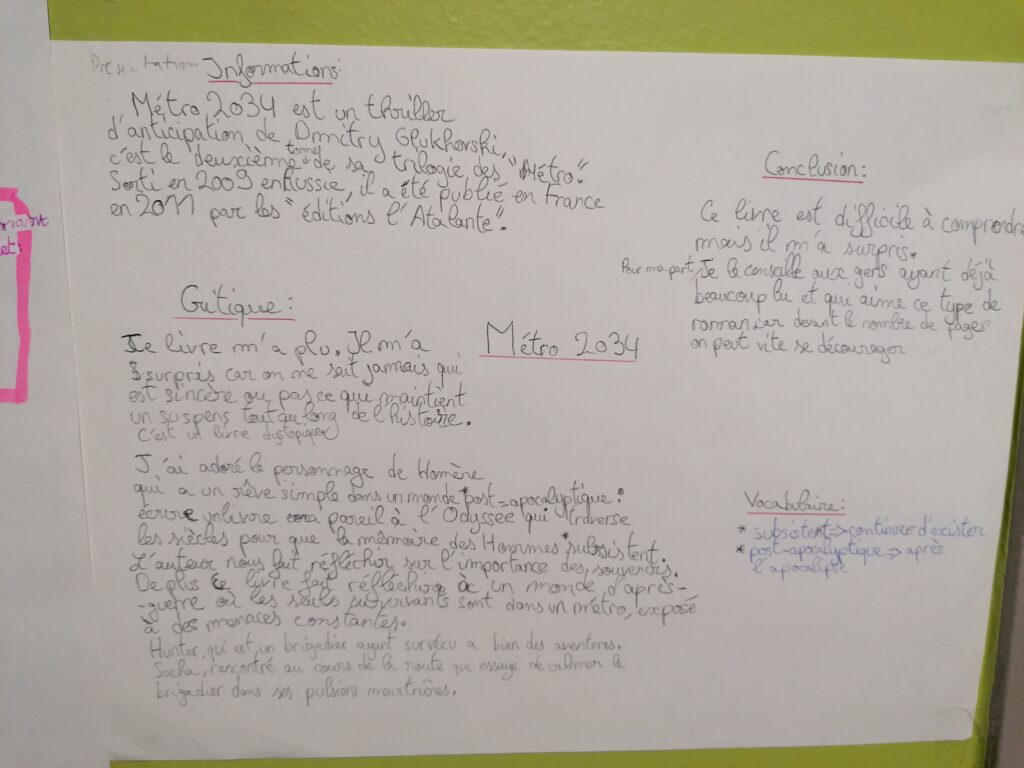 Présentation Informations:
Métro 2034 est un thriller
d'anticipation de Dmitry Glukhovski,
c'est le deuxième tome de sa trilogie des "Métro".
Sorti en 2009 en Russie, il a été publié en France
en 2011 par les "éditions l'Atalante".
Critique:
Ce livre m'a plu. Il m'a
surpris car on ne sait jamais qui
est sincère ou pas ce que maintient
un suspens tout au long de l'histoire.
C'est un livre dystopique
J'ai adoré le personnage de Homère
qui a un rêve simple dans un monde *post-apocalyptique:
écrire un livre pareil à l'Odyssée qui traverse
les siècles pour que la mémoire des Hommes *subsistent.
L'auteur nous fait réfléchir sur l'importance des souvenirs.
De plus ce livre fait réfléchir à un monde d'après-
-guerre où les seuls survivants sont dans un métro, exposé
à des menaces constantes.
Hunter, qui est un brigadier ayant survécu a bien des aventures.
Sacha, rencontré au cours de la route qui essaye de calmer le
brigadier dans ses pulsions meurtrières.
Métro 2034
Conclusion:
Ce livre est difficile à comprendre
mais il m'a surpris.
Pour ma part, Je le conseille aux gens ayant déjà
beaucoup lu et que aime ce type de
roman, car devant le nombre de pages
on peut vite se décourager...
Vocabulaire:
* subsistent => continuer d'exister
* post-apocalyptique => après
l'apocalipse